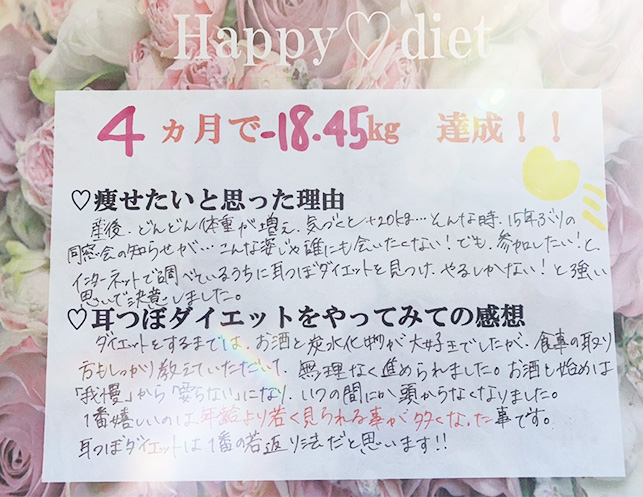 Happy♡diet
4ヵ月で-18.45kg 達成！！
♡痩せたいと思った理由
産後、どんどん体重が増え、気づくと+20kg…そんな時、15年ぶりの
同窓会の知らせが…こんな姿じゃ誰にも会いたくない！でも、参加したい！と、
インターネットで調べているうちに耳つぼダイエットを見つけ、やるしかない！と強い
思いで決意しました。
♡耳つぼダイエットをやってみての感想
ダイエットをするまでは、お酒と炭水化物が大好きでしたが、食事の取り
方もしっかり教えていただいて、無理なく進められました。お酒も始めは
「我慢」から「要らない」になり、いつの間にか頭からなくなりました。
1番嬉しいのは年齢より若く見られる事が多くなった事です。
耳つぼダイエットは1番の若返り法だと思います!!